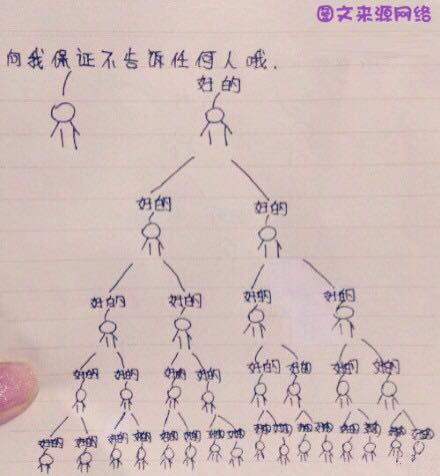 图文来源网络
向我保证不告诉任何人哦.
好的
好的 好的
好的 好的 好的 好的
好的 好的 好的 好的 好的 好的 好的 好的
好的 好的 好的 好的 好的 好的 好的 好的 好的 好的 好的 好的 好的 好的